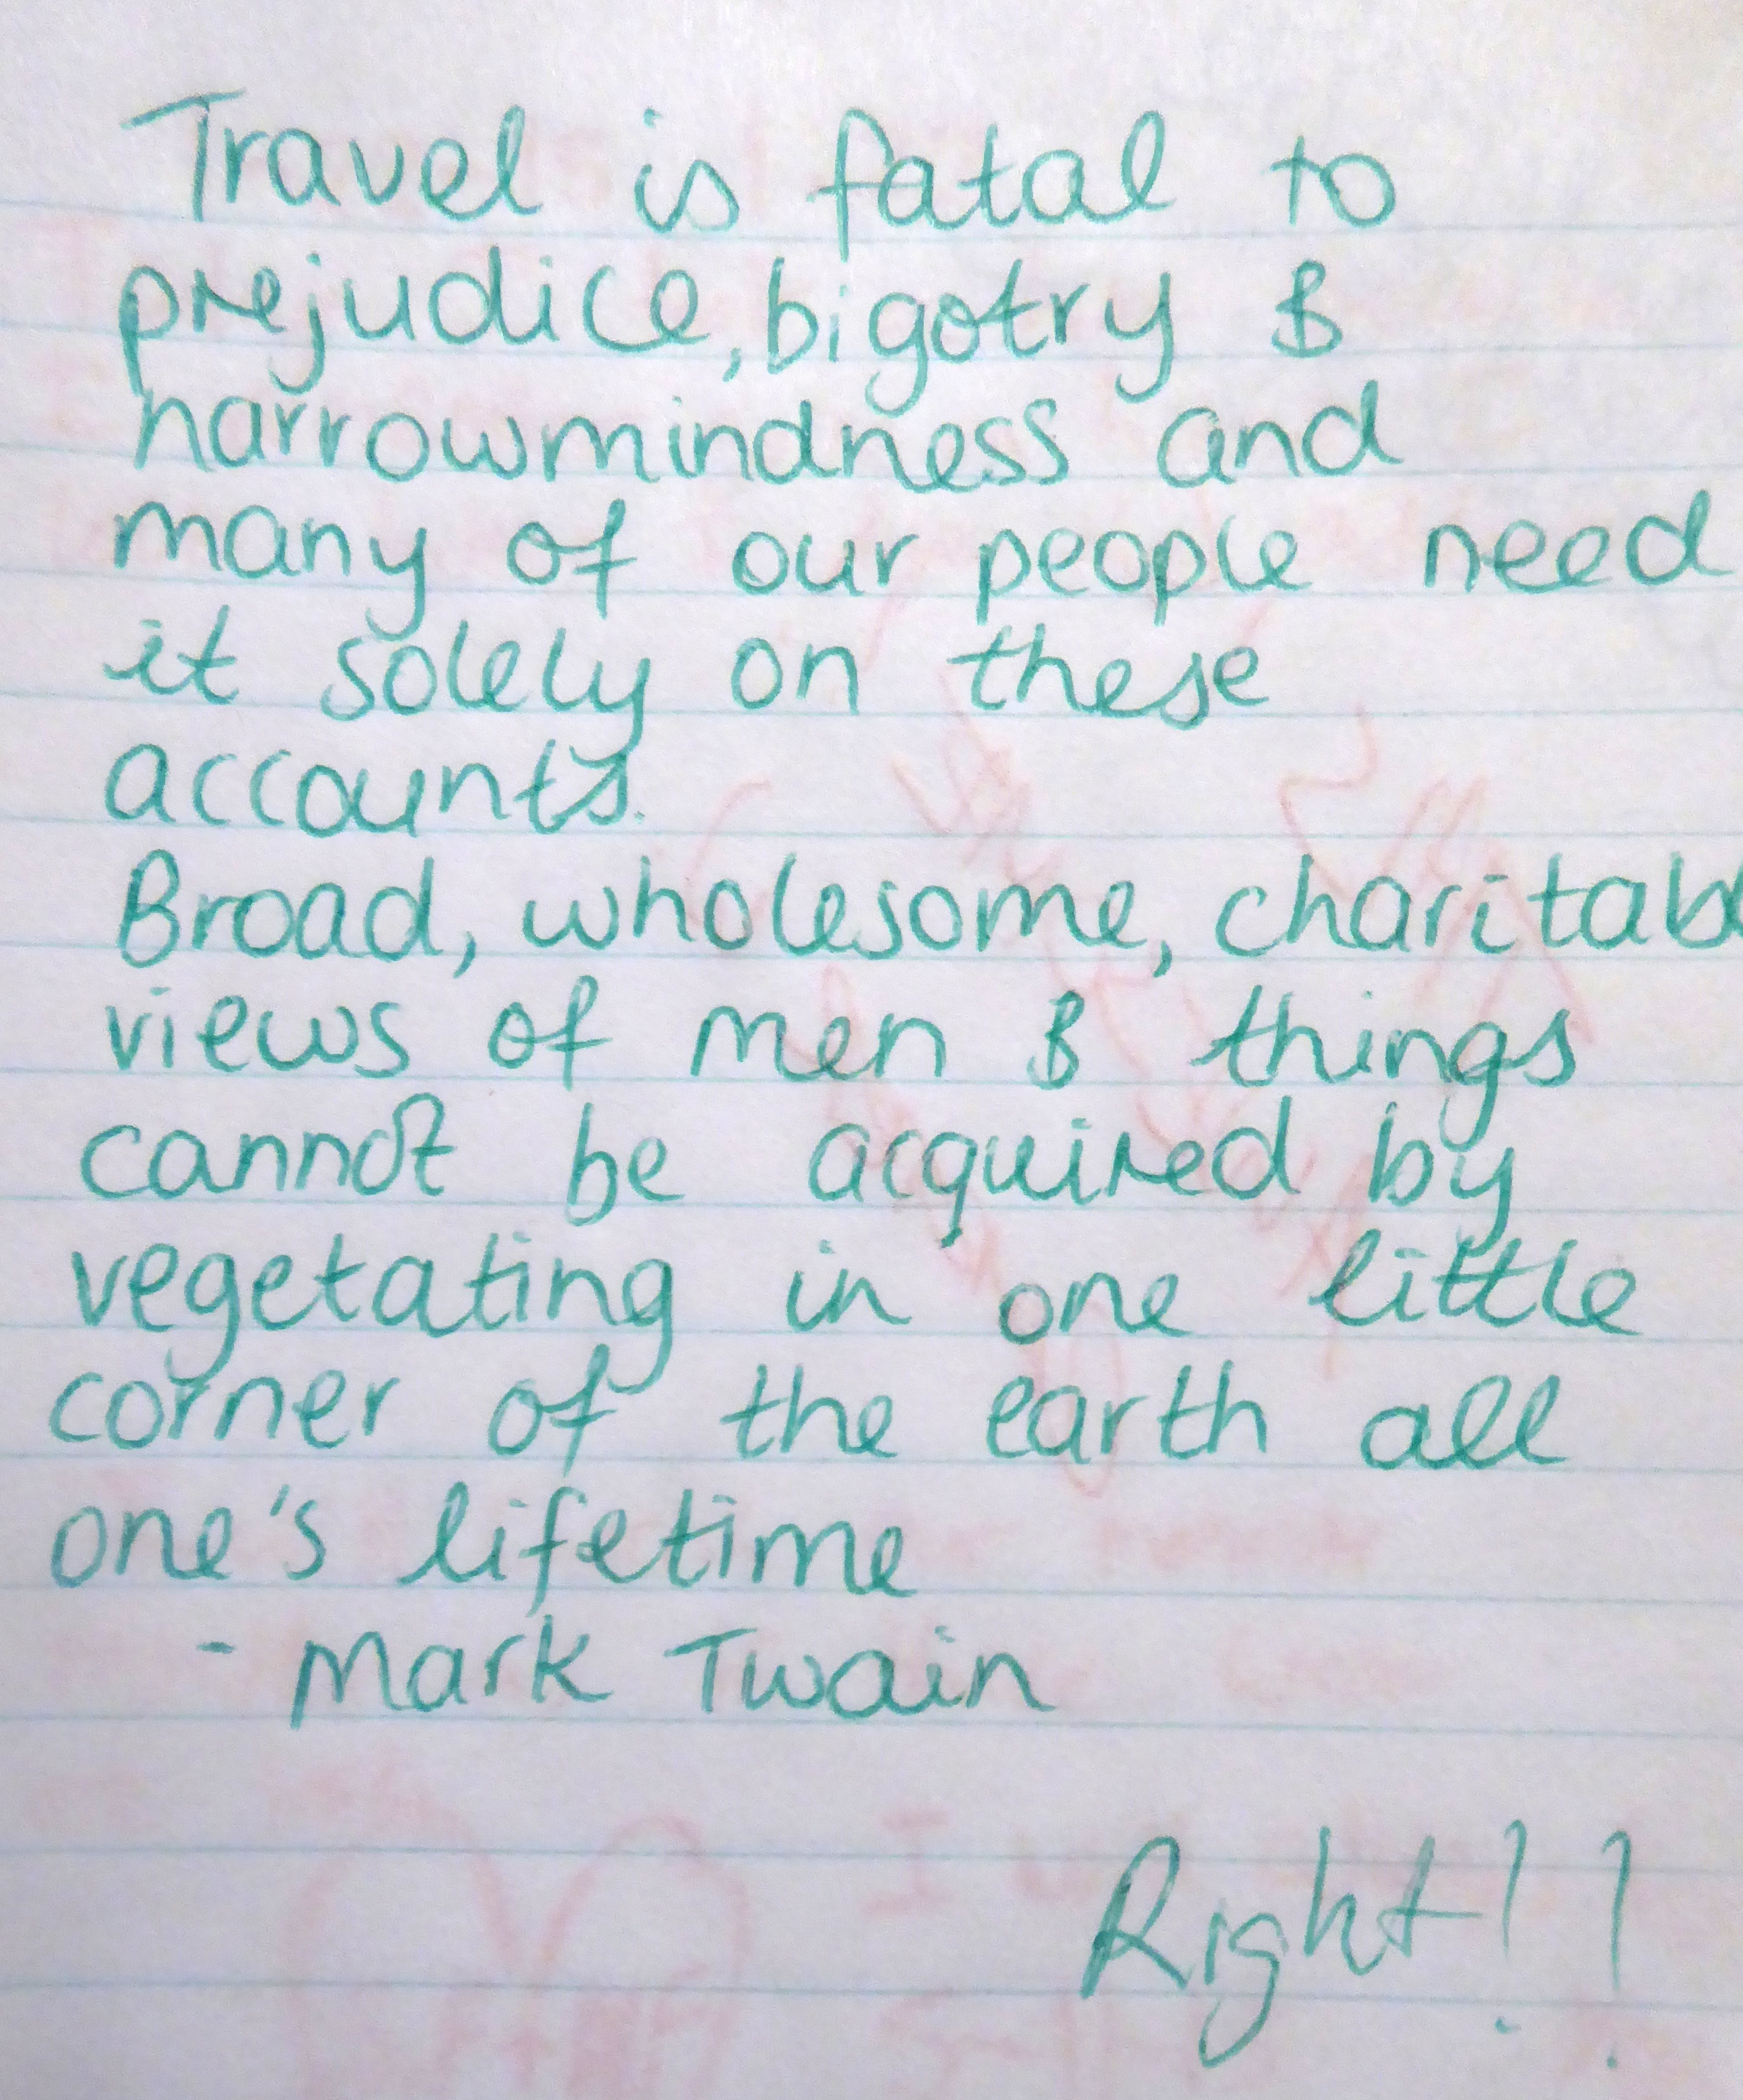 Travel is fatal to
prejudice, bigotry &
narrowmindness and
many of our people need
it solely on these
accounts.
Broad, wholesome, charitabl
views of men & things
cannot be acquired by
vegetating in one little
corner of the earth all
one's lifetime
- Mark Twain
Right!!